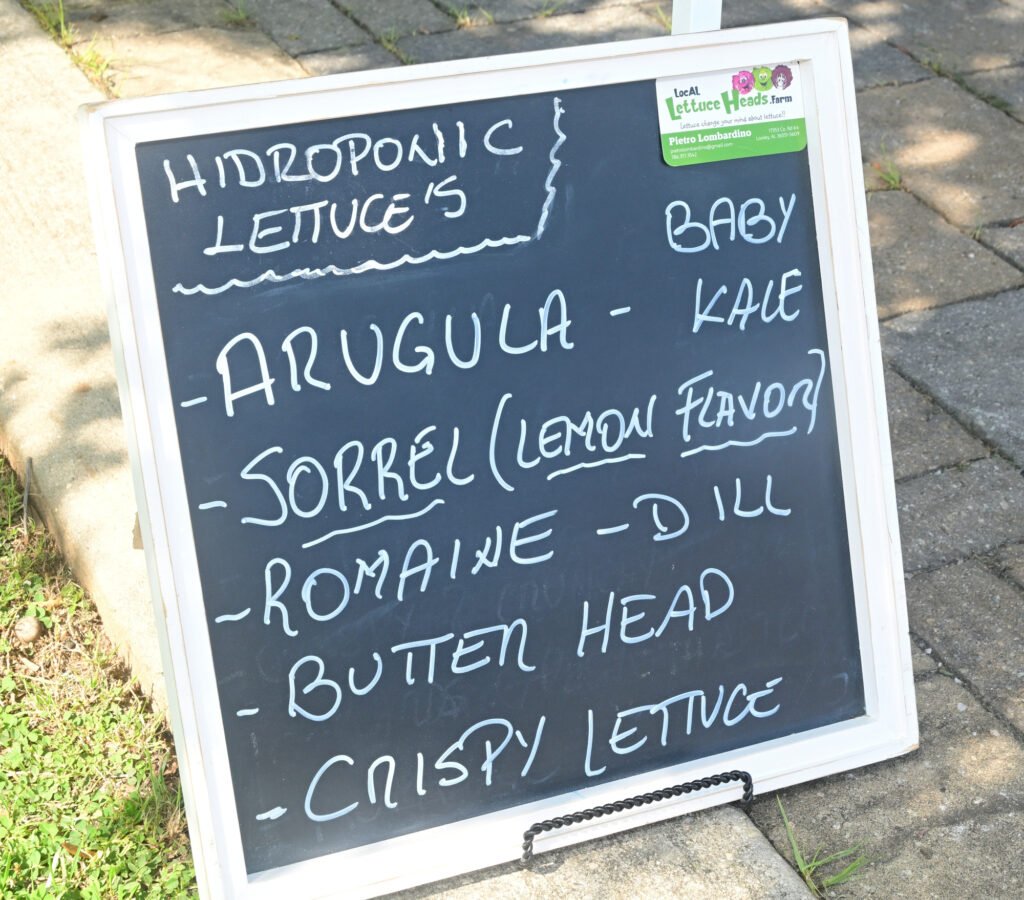 LocAL
Lettuce Heads.Farm
Lettuce change your mind about lettuce!!
Pietro Lombardino
HIDROPONIC
LETTUCE'S
- ARUGULA - BABY KALE
- SORREL (LEMON FLAVOR)
- ROMAINE - DILL
- BUTTER HEAD
- CRISPY LETTUCE